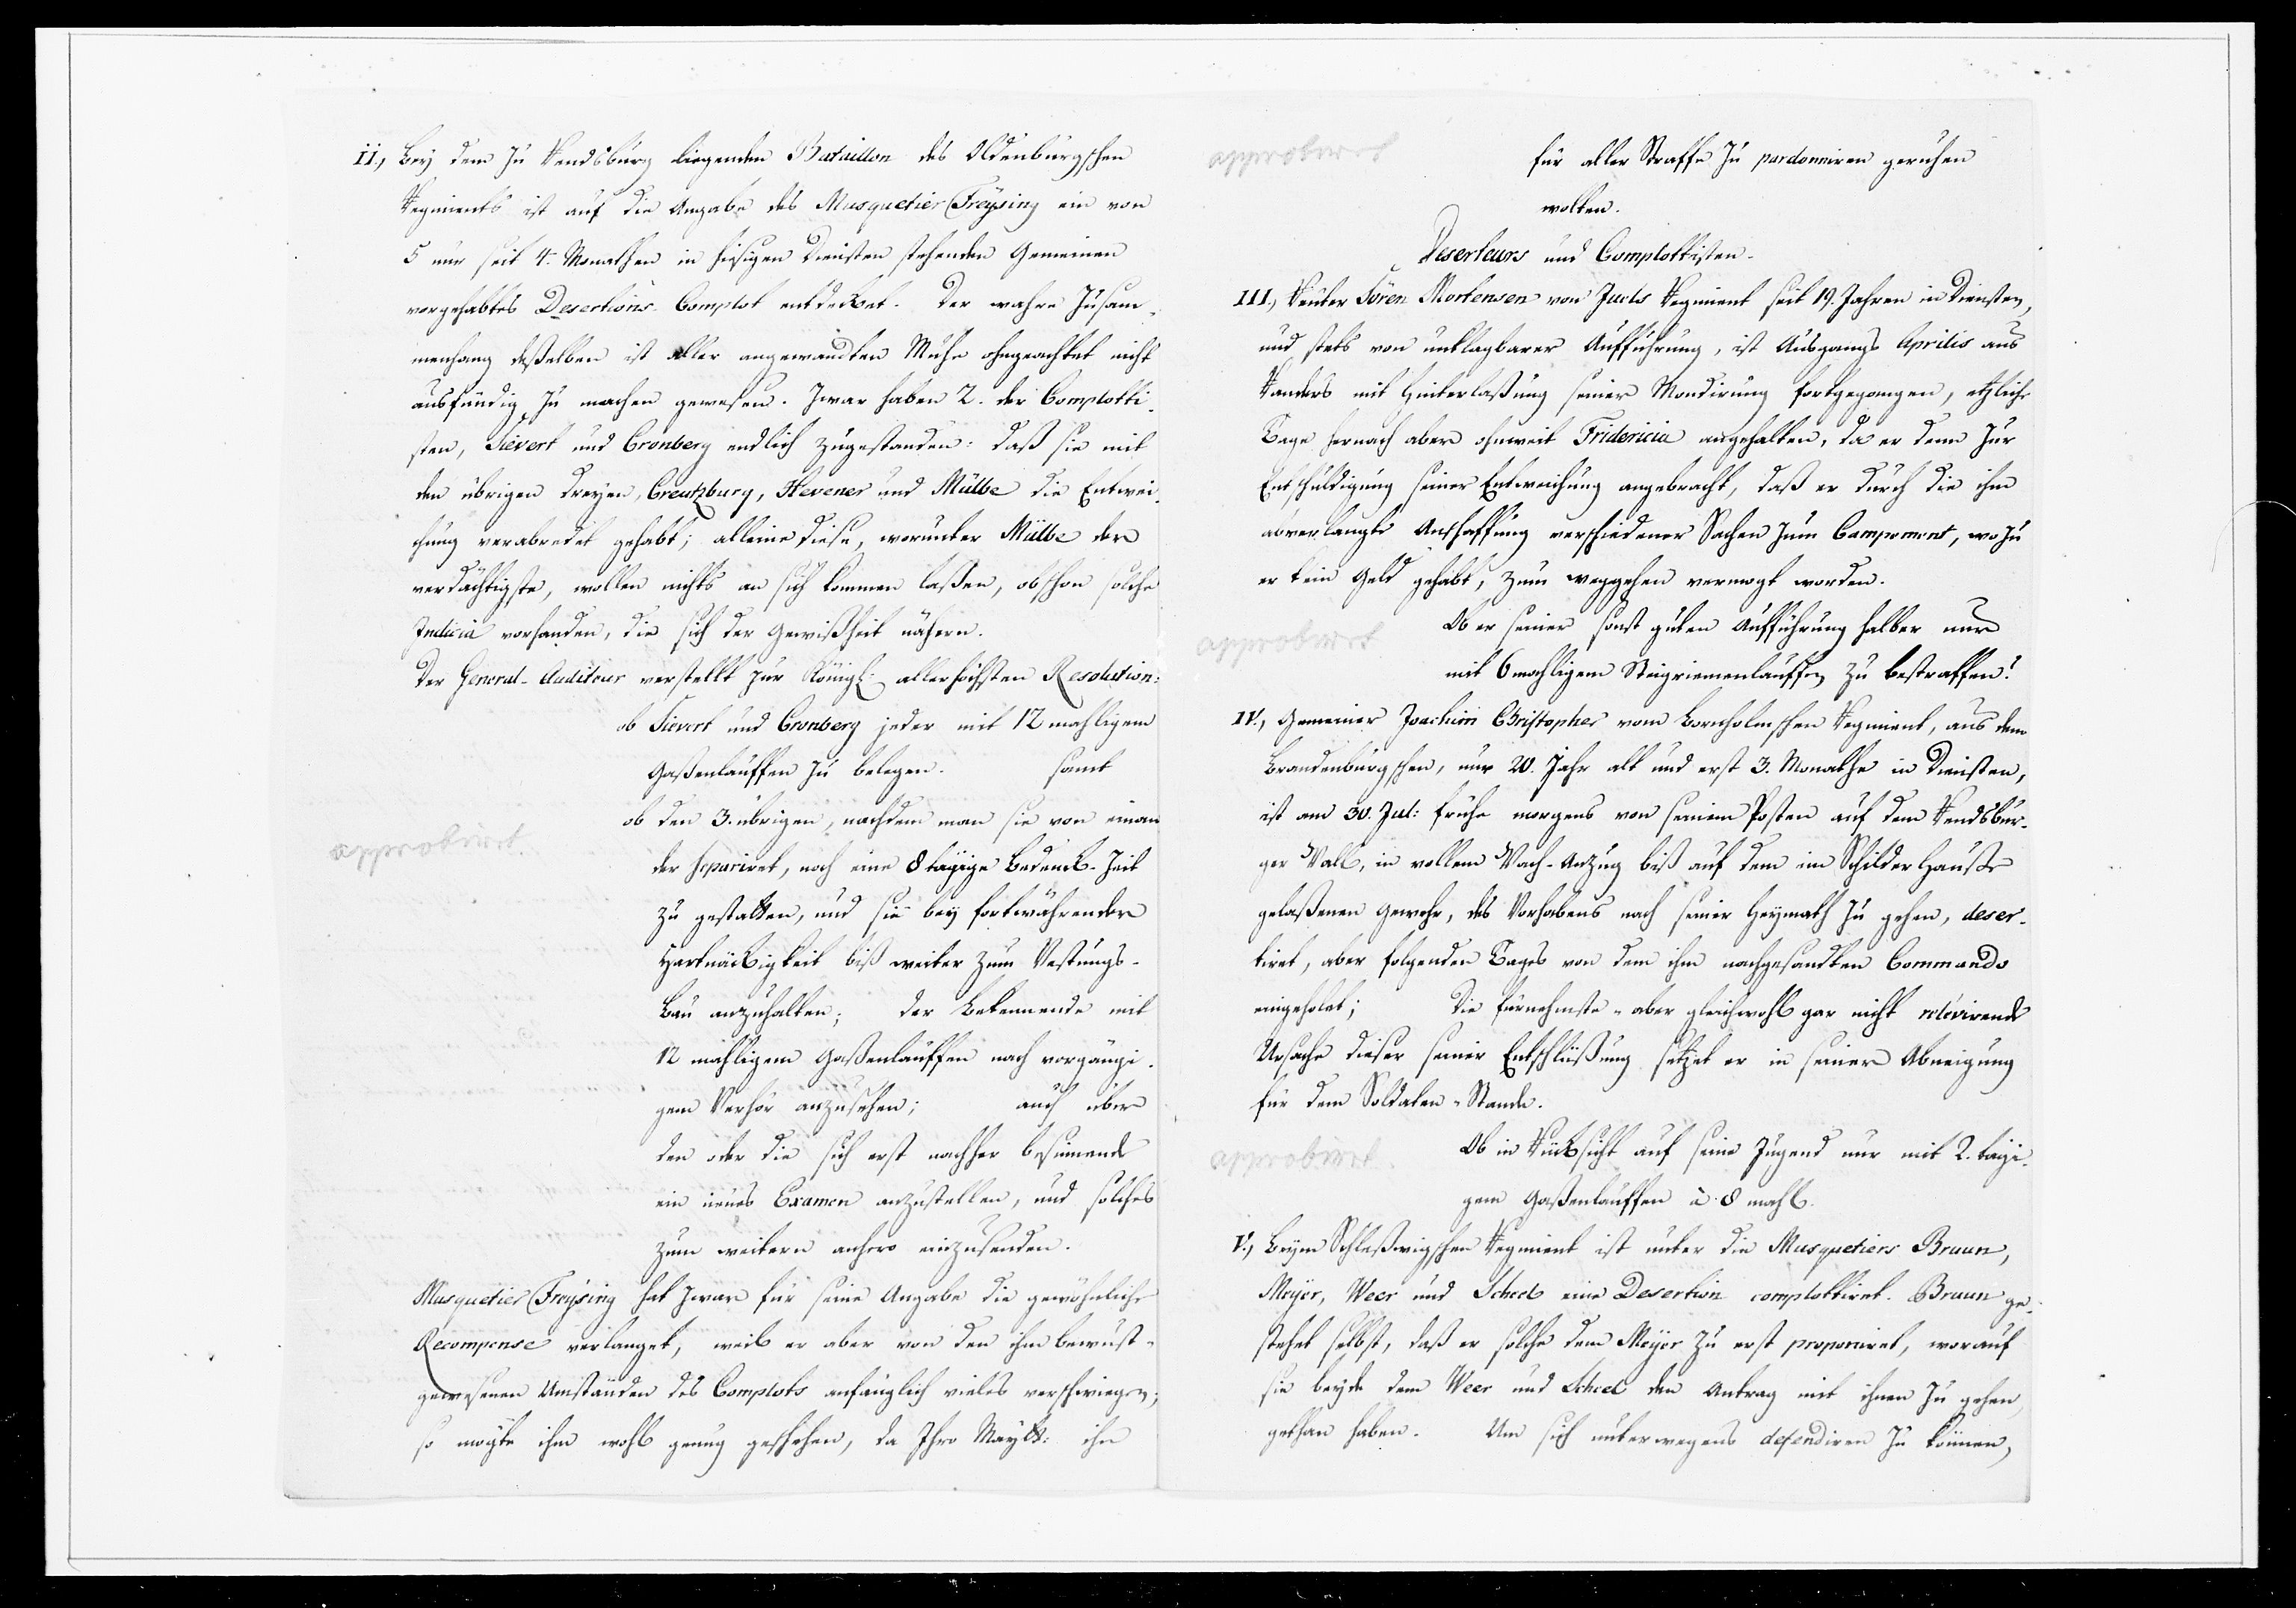 II., Bey dem zu Rendsburg liegenden Bataillon des Oldenburgschen
Regiments ist auf die Angabe des Musquetier Freysing ein von
5 nur seit 4. Monathen in hisigen Diensten stehenden Gemeinen
vorgehabtes Desertions-Complot entdecket. Der wahre Zusam-
menhang deßelben ist aller angewandten Mühe ohngeachtet nicht
ausfündig zu machen gewesen. Zwar haben 2. der Complotti-
sten, Sievert und Cronberg endlich zugestanden: daß sie mit
den übrigen dreyen, Creutzburg, Hevener und Mülbe die Entwei-
chung verabredet gehabt; alleine diese, worunter Mülbe der
verdächtigste, wollen nichts an sich kommen laßen, obschon solche
Indicia vorhanden, die sich der Gewißheit nähern.
Der General-Auditeur verstellt zur Königl: allerhöchsten Resolution:
ob Sievert und Cronberg jeder mit 12 mahligem
Gaßenlauffen zu belegen. samt
ob den 3. übrigen, nachdem man sie von einan
approbiret.
der separiret, noch eine 8 tägige Bedenck-Zeit
zu gestatten, und sie bey fortwährender
Hartnäckigkeit biß weiter zum Vestungs-
Bau anzuhalten; der Bekennende mit
12 mahligem Gaßenlauffen nach vorgängi-
gem Verhör anzusehen; auch über
den oder die sich erst nachher besinnende
ein neues Examen anzustellen, und solches
zum weitern anhero einzusenden.
Musquetier Freysing hat zwar für seine Angabe die gewöhnliche
Recompense verlanget, weil er aber von den ihm bewust-
gewesenen Umständen des Complots anfänglich vieles verschwiegen;
so mögte ihm wohl genug geschehen, da Ihro Maytt: ihn
approbiret
für aller Straffe zu pardonniren geruhen
wolten.
Deserteurs und Complottisten.
III., Reuter Sören Mortensen von Juels Regiment seit 19. Jahren in Diensten,
und stets von unklagbarer Aufführung, ist Ausgangs Aprilis aus
Randers mit Hinterlaßung seiner Mondirung fortgegangen, etzliche
Tage hernach aber ohnweit Fridericia angehalten, da er denn zur
Entschuldigung seiner Entweichung angebracht, daß er durch die ihm
abverlangte Anschaffung verschiedener Sachen zum Campement, wozu
er kein Geld gehabt, zum weggehen vermogt worden.
approbiret
Ob er seiner sonst guten Aufführung halber nur
mit 6 mahligem Steigriemenlauffen zu bestraffen!
IV., Gemeiner Joachim Christopher vom Bornholmschen Regiment, aus dem
Brandenburgschen, nur 20. Jahr alt und erst 3. Monathe in Diensten,
ist am 30. Jul: frühe morgens von seinem Posten auf dem Rendsbur-
ger Wall, in vollem Wach-Anzug biß auf dem im Schilder Hauße
gelaßenen Gewehr, des Vorhabens nach seiner Heymath zu gehen, deser-
tiret, aber folgenden Tages von dem ihm nachgesandten Commando
eingeholet; Die fürnehmste- aber gleichwohl gar nicht relevirende
Ursache dieser seiner Entschlüßung setzet er in seiner Abneigung
für dem Soldaten-Stande.
approbiret.
Ob in Rücksicht auf seine Jugend nur mit 2. tägi-
gem Gaßenlauffen à 8 mahl.
V., Beym Schleßwigschen Regiment ist unter die Musquetiers Bruun,
Meyer, Weer und Scheel eine Desertion complottiret. Bruun ge-
stehet selbst, daß er solche dem Meyer zu erst proponiret, worauf
sie beyde dem Weer und Scheel den Antrag mit ihnen zu gehen,
gethan haben. Um sich unterwegens defendiren zu können,